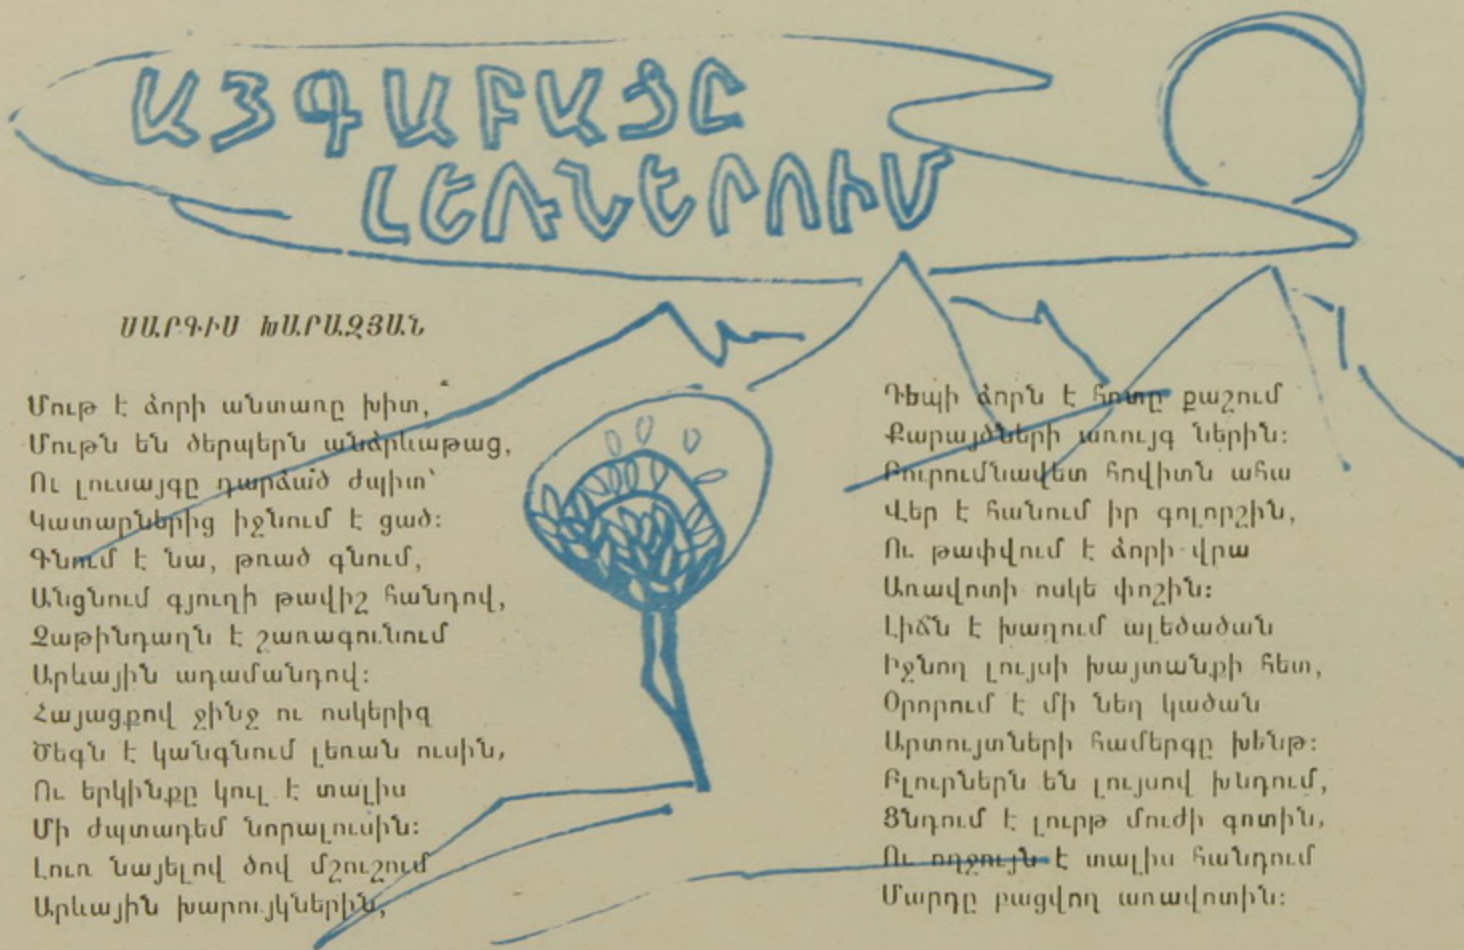 ԱՅԳԱԲԱՑԸ
ԼԵՌՆԵՐՈՒՄ
ՍԱՐԳԻՍ ԽԱՐԱԶՅԱՆ
Մութ է ձորի անտառը խիտ,
Մութն են ծերպերն անձրևաթաց,
Ու լուսայգը դարձած ժպիտ՝
Կատարներից իջնում է ցած։
Գնում է նա, թռած գնում,
Անցնում գյուղի թավիշ հանդով,
Չաթինդաղն է շառագունում
Արևային ադամանդով։
Հայացքով ջինջ ու ոսկերիզ
Ծեգն է կանգնում լեռան ուսին,
Ու երկինքը կուլ է տալիս
Մի ժպտադեմ նորալուսին։
Լուռ նայելով ծով մշուշում
Արևային խարույկներին,
Դեպի ձորն է հոտը քաշում
Քարայծների առույգ ներին։
Բուրումնավետ հովիտն ահա
Վեր է հանում իր գոլորշին,
Ու թափվում է ձորի վրա
Առավոտի ոսկե փոշին։
Լիճն է խաղում ալեծածան
Իջնող լույսի խայտանքի հետ,
Օրորում է մի նեղ կածան
Արտույտների համերգը խենթ։
Բլուրներն են լույսով խնդում,
Ցնդում է լուրթ մուժի գոտին,
Ու ողջույն է տալիս հանդում
Մարդը բացվող առավոտին։